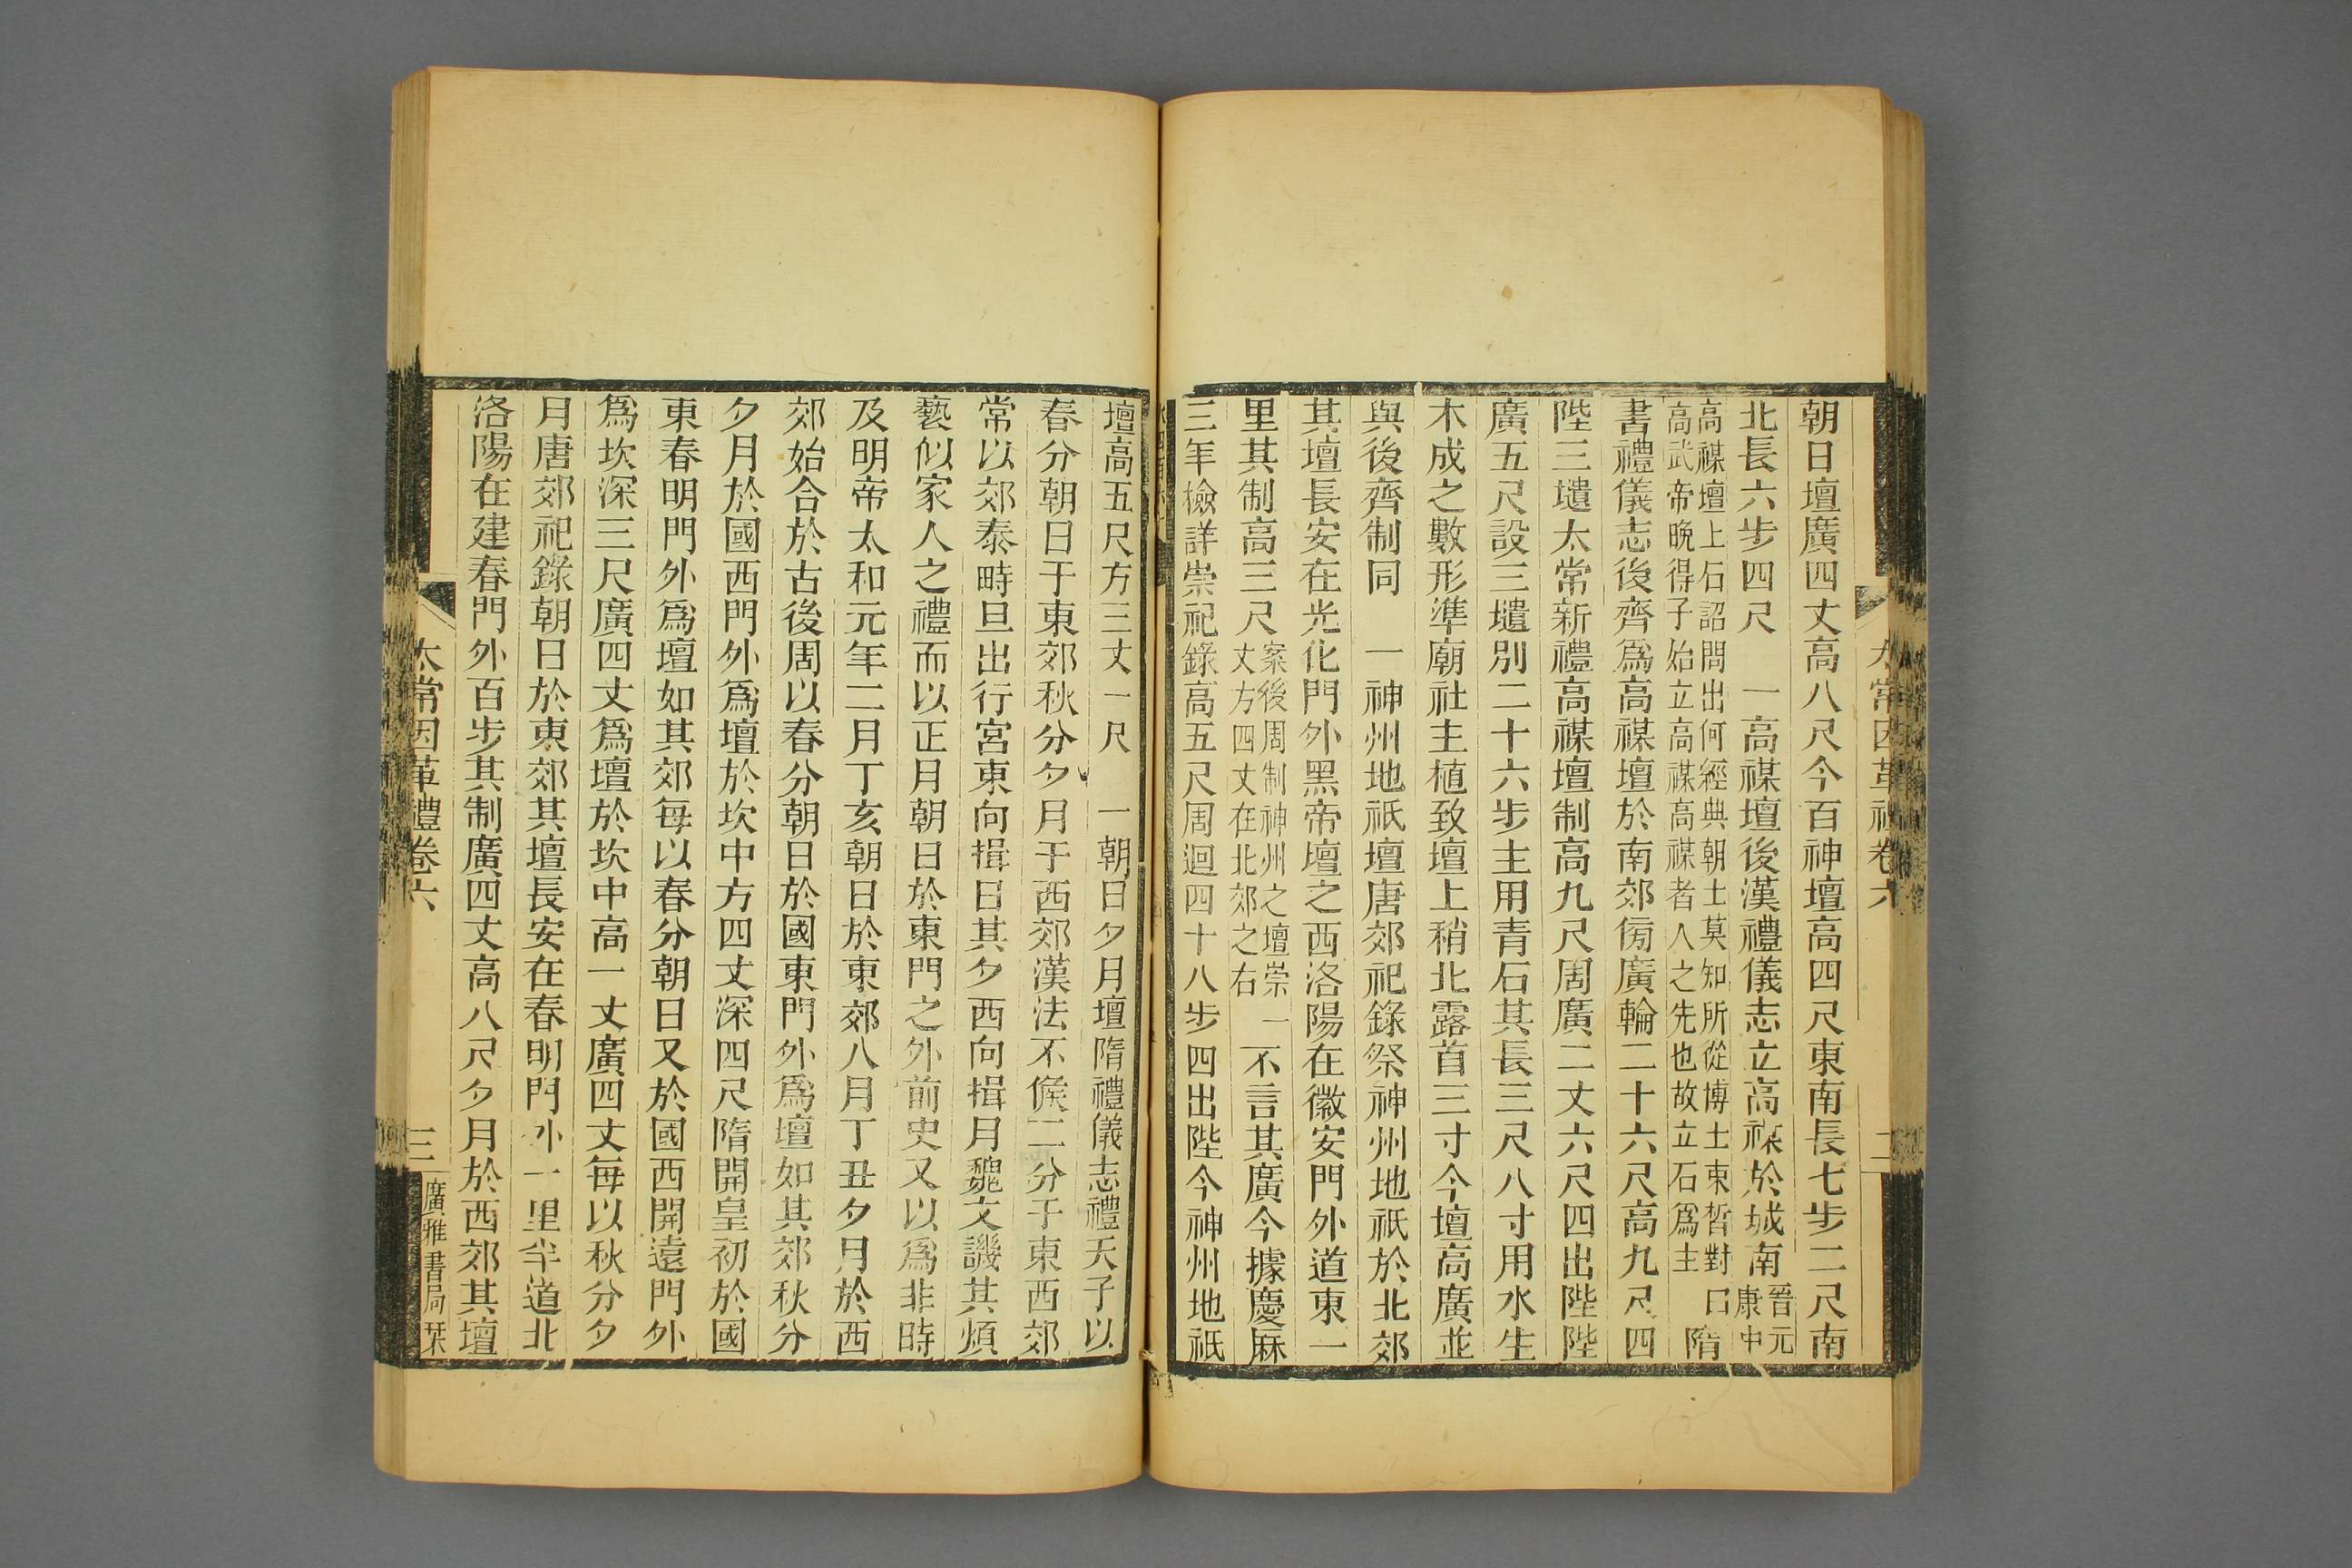 太常因革禮卷六
二
朝日壇廣四丈高八尺今百神壇高四尺東南長七步二尺南
北長六步四尺　一高禖壇後漢禮儀志立高禖於城南晉元康中
高禖壇上石詔問出何經典朝士莫知所從博士束晳對曰
高武帝晚得子始立高禖高禖者人之先也故立石爲主隋
書禮儀志後齊爲高禖壇於南郊傍廣輪二十六尺高九尺四
陛三壝太常新禮高禖壇制高九尺周廣二丈六尺四出陛陛
廣五尺設三壝別二十六步主用青石其長三尺八寸用水生
木成之數形準廟社主植致壇上稍北露首三寸今壇高廣並
與後齊制同　一神州地祇壇唐郊祀錄祭神州地祇於北郊
其壇長安在光化門外黑帝壇之西洛陽在徽安門外道東一
里其制高三尺案後周制神州之壇崇丈方四丈在北郊之右一不言其廣今據慶厤
三年檢詳崇祀錄高五尺周迴四十八步四出陛今神州地祇
壇高五尺方三丈一尺　一朝日夕月壇隋禮儀志禮天子以
春分朝日于東郊秋分夕月于西郊漢法不俟二分于東西郊
常以郊泰畤旦出行宮東向揖日其夕西向揖月魏文譏其煩
褻似家人之禮而以正月朝日於東門之外前史又以爲非時
及明帝太和元年二月丁亥朝日於東郊八月丁丑夕月於西
郊始合於古後周以春分朝日於國東門外爲壇如其郊秋分
夕月於國西門外爲壇於坎中方四丈深四尺隋開皇初於國
東春明門外爲壇如其郊每以春分朝日又於國西開遠門外
爲坎深三尺廣四丈爲壇於坎中高一丈廣四丈每以秋分夕
月唐郊祀錄朝日於東郊其壇長安在春明門外一里半道北
洛陽在建春門外百步其制廣四丈高八尺夕月於西郊其壇
太常因革禮卷六
三
廣雅書局栞